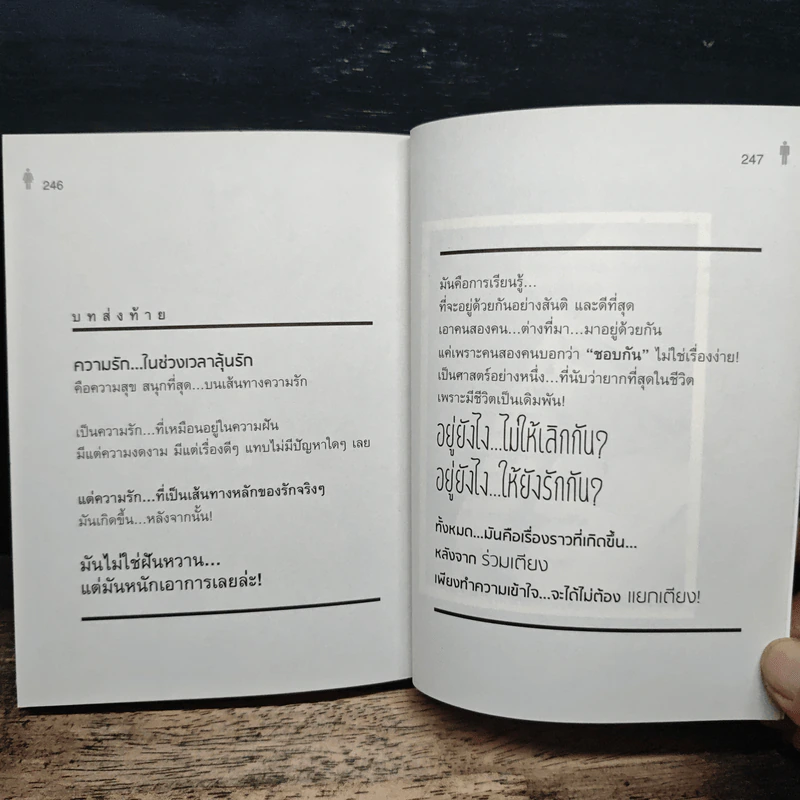 246
บทส่งท้าย
ความรัก...ในช่วงเวลาลุ้นรัก
คือความสุข สนุกที่สุด...บนเส้นทางความรัก
เป็นความรัก...ที่เหมือนอยู่ในความฝัน
มีแต่ความงดงาม มีแต่เรื่องดีๆ แทบไม่มีปัญหาใดๆ เลย
แต่ความรัก...ที่เป็นเส้นทางหลักของรักจริงๆ
มันเกิดขึ้น...หลังจากนั้น!
มันไม่ใช่ฝันหวาน...
แต่มันหนักเอาการเลยล่ะ!
247
มันคือการเรียนรู้...
ที่จะอยู่ด้วยกันอย่างสันติ และดีที่สุด
เอาคนสองคน...ต่างที่มา...มาอยู่ด้วยกัน
แค่เพราะคนสองคนบอกว่า “ชอบกัน” ไม่ใช่เรื่องง่าย!
เป็นศาสตร์อย่างหนึ่ง...ที่นับว่ายากที่สุดในชีวิต
เพราะมีชีวิตเป็นเดิมพัน!
อยู่ยังไง...ไม่ให้เลิกกัน?
อยู่ยังไง...ให้ยังรักกัน?
ทั้งหมด...มันคือเรื่องราวที่เกิดขึ้น...
หลังจาก ร่วมเตียง
เพียงทำความเข้าใจ...จะได้ไม่ต้อง แยกเตียง!